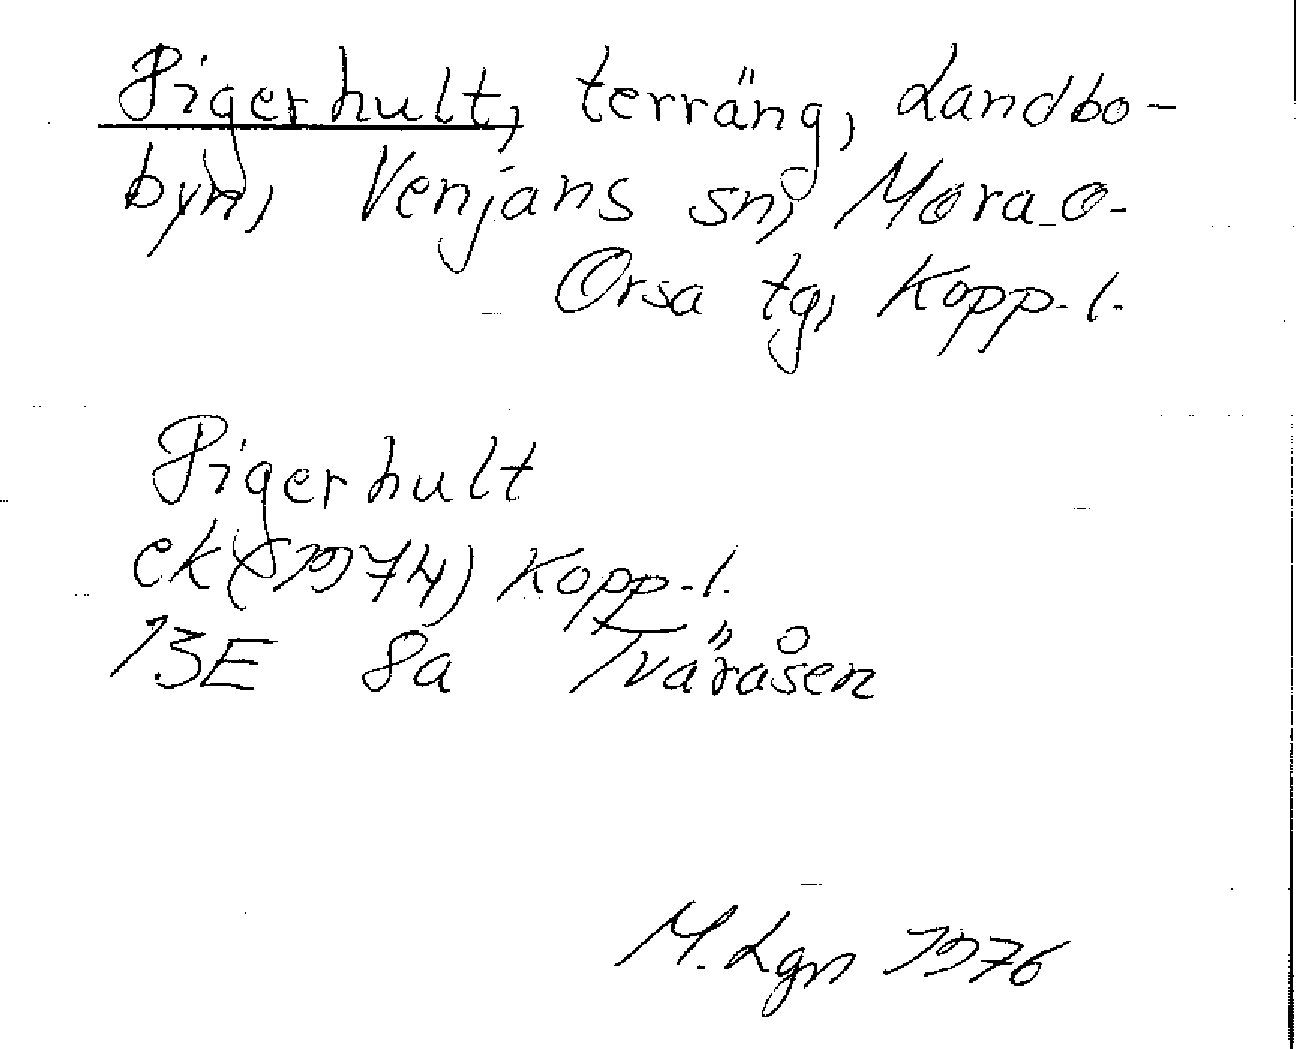 Pigerhult, terräng, Landbo-
byn, Venjans sn, Mora o.
Orsa tg, Kopp. l.
Pigerhult
ek (1974) Kopp. l.
13E 8a Tväråsen
M. Lgn 1976